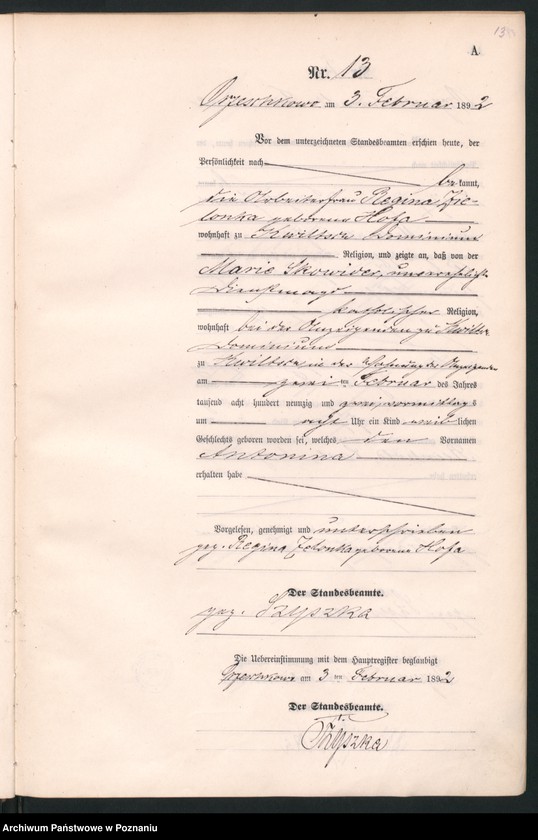 13
A
Nr. 13
Orzeschkowo am 3. Februar 1892
Vor dem unterzeichneten Standesbeamten erschien heute, der
Persönlichkeit nach
be kannt,
die Arbeiterfrau Regina Zie-
lonka geborene Hofa
wohnhaft zu Kwiltsch Dominium
Religion, und zeigte an, daß von der
Marie Skowider, unverehelicht
Dienstmagd
katholischer Religion,
wohnhaft bei der Anzeigenden zu Kwiltsch
Dominium
zu Kwiltsch in der Wohnung der Anzeigenden
am zwei ten Februar des Jahres
tausend acht hundert neunzig und zwei, vormittags
um acht Uhr ein Kind weib lichen
Geschlechts geboren worden sei, welches den Vornamen
Antonina
erhalten habe
Vorgelesen, genehmigt und unterschrieben
gez. Regina Zolonka geborene Hofa
Der Standesbeamte.
gez. Szyszka
Die Uebereinstimmung mit dem Hauptregister beglaubigt
Orzeschkowo am 3 ten Februar 1892
Der Standesbeamte.
Szyszka
Archiwum Państwowe w Poznaniu